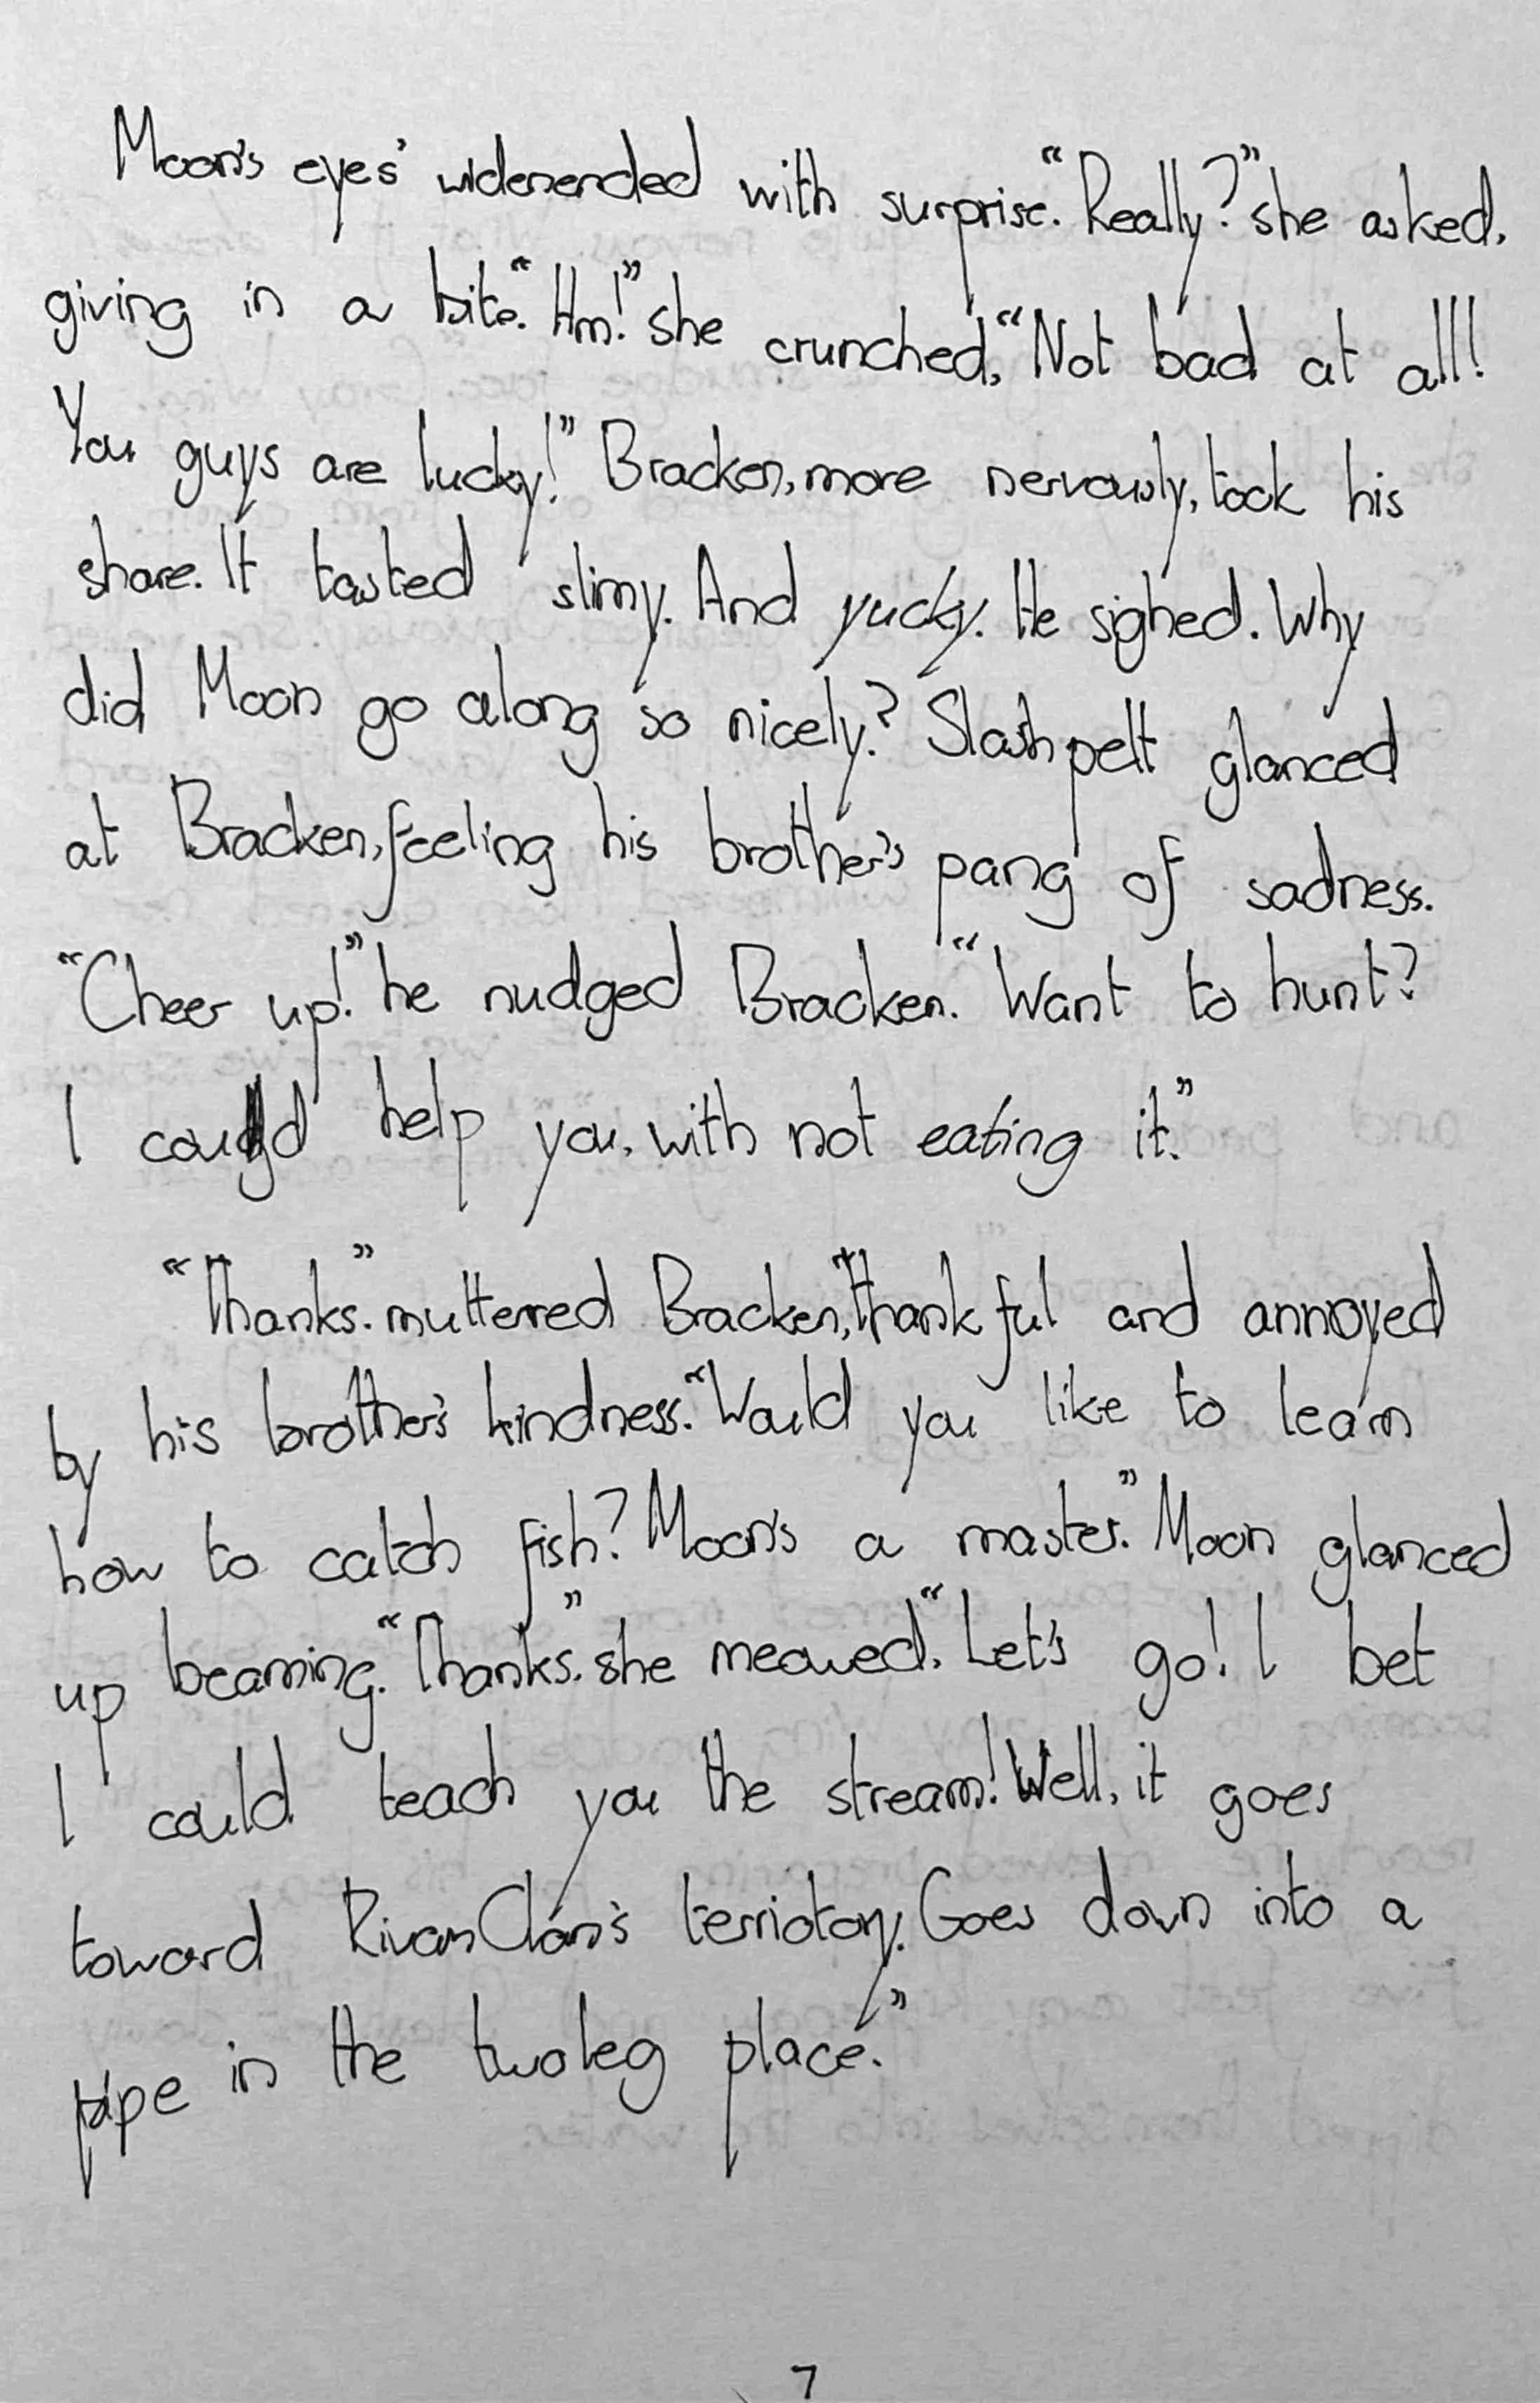 Moon's eyes' widenended with surprise. “Really?” she asked,
giving in a bite. “Hm!” she crunched, “Not bad at all!
You guys are lucky!” Bracken, more nervously, took his
share. It tasted slimy. And yucky. He sighed. Why
did Moon go along so nicely? Slashpelt glanced
at Bracken, feeling his brother's pang of sadness.
“Cheer up!” he nudged Bracken. “Want to hunt?
I could help you, with not eating it.”
“Thanks.” muttered Bracken, thankful and annoyed
by his brother's kindness. “Would you like to learn
how to catch fish? Moon's a master.” Moon glanced
up beaming. “Thanks.” she meowed, “Let's go! I bet
I could teach you the stream! Well, it goes
toward RivanClan's terriotory. Goes down into a
pipe in the twoleg place.”
7